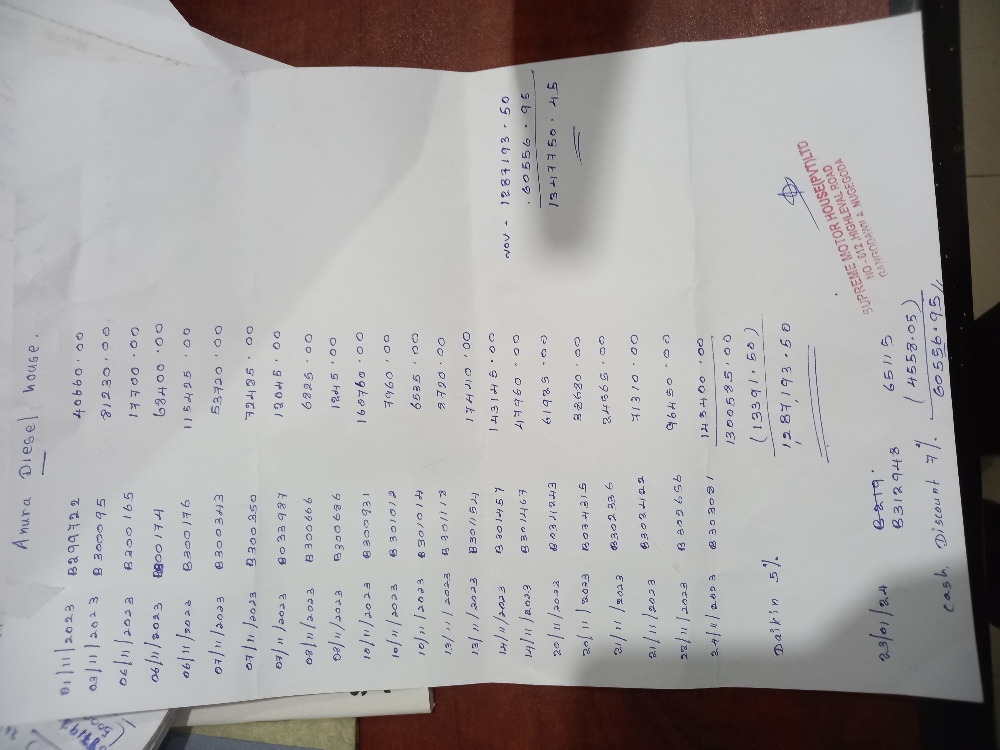 Anura Diesel house.
01/11/2023 B299722 40660.00
03/11/2023 B300095 81230.00
06/11/2023 B300165 17700.00
06/11/2023 B300174 68400.00
06/11/2023 B300176 115425.00
07/11/2023 B300343 53720.00
07/11/2023 B300350 72485.00
07/11/2023 B033987 12045.00
08/11/2023 B300666 6825.00
08/11/2023 B300686 1845.00
10/11/2023 B300931 160760.00
10/11/2023 B301012 7960.00
10/11/2023 B301014 6535.00
13/11/2023 B301118 8720.00
13/11/2023 B301154 17440.00
14/11/2023 B301457 143145.00
14/11/2023 B301467 47960.00
20/11/2023 B034243 61925.00
20/11/2023 B034315 38680.00
21/11/2023 B302336 24565.00
21/11/2023 B302422 71310.00
22/11/2023 B302656 96450.00
24/11/2023 B303081 143400.00
1300585.00
Daikin 5% (13391.50)
1287,193.50
NOV - 1287193.50
60556.95
1347750.45
SUPREME MOTOR HOUSE(PVT)LTD
NO - 612 HIGHLEVAL ROAD
GANGODAWILA NUGEGODA
23/01/24 B312948 65115
Cash Discount 7% (4558.05)
60556.95